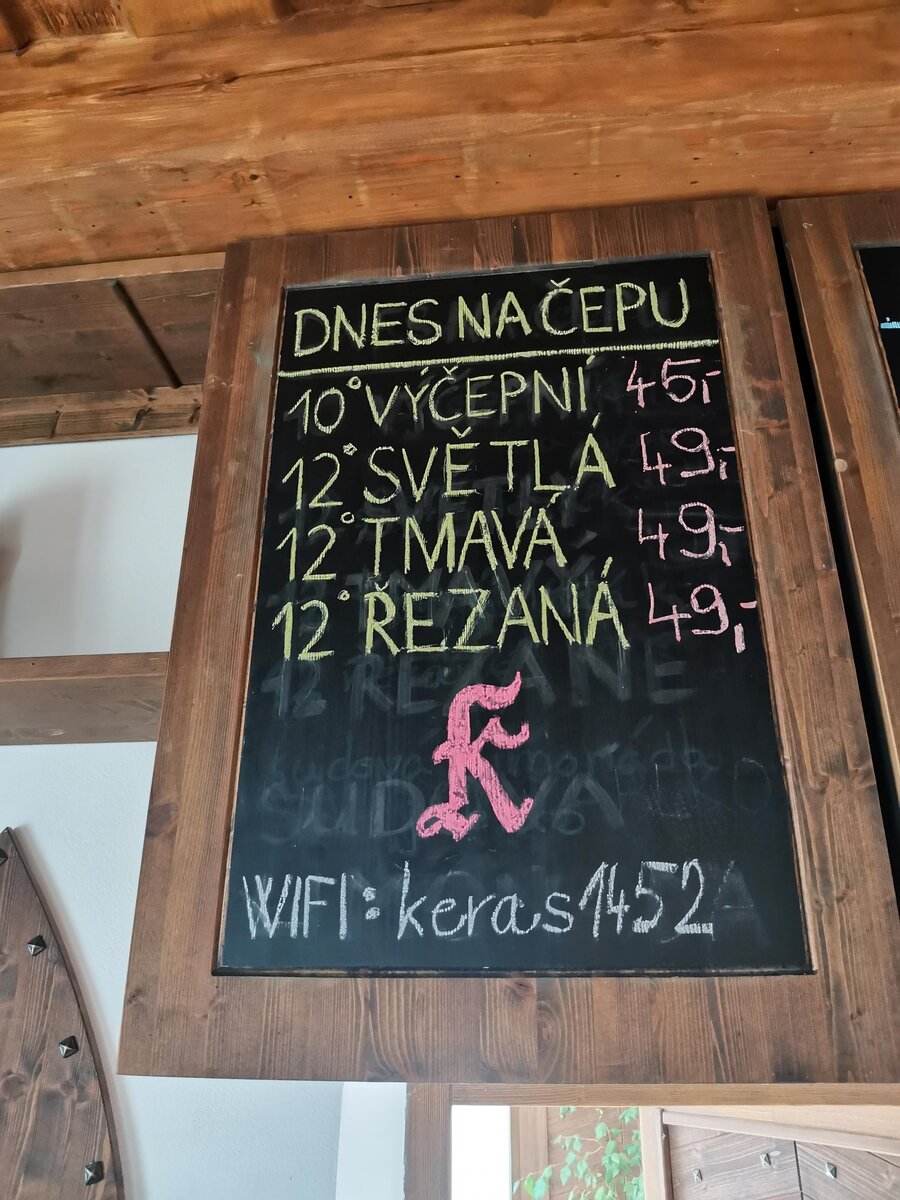 DNES NA ČEPU
10° VÝČEPNÍ 45,-
12° SVĚTLÁ 49,-
12° TMAVÁ 49,-
12° ŘEZANÁ 49,-
K
WIFI: keras1452